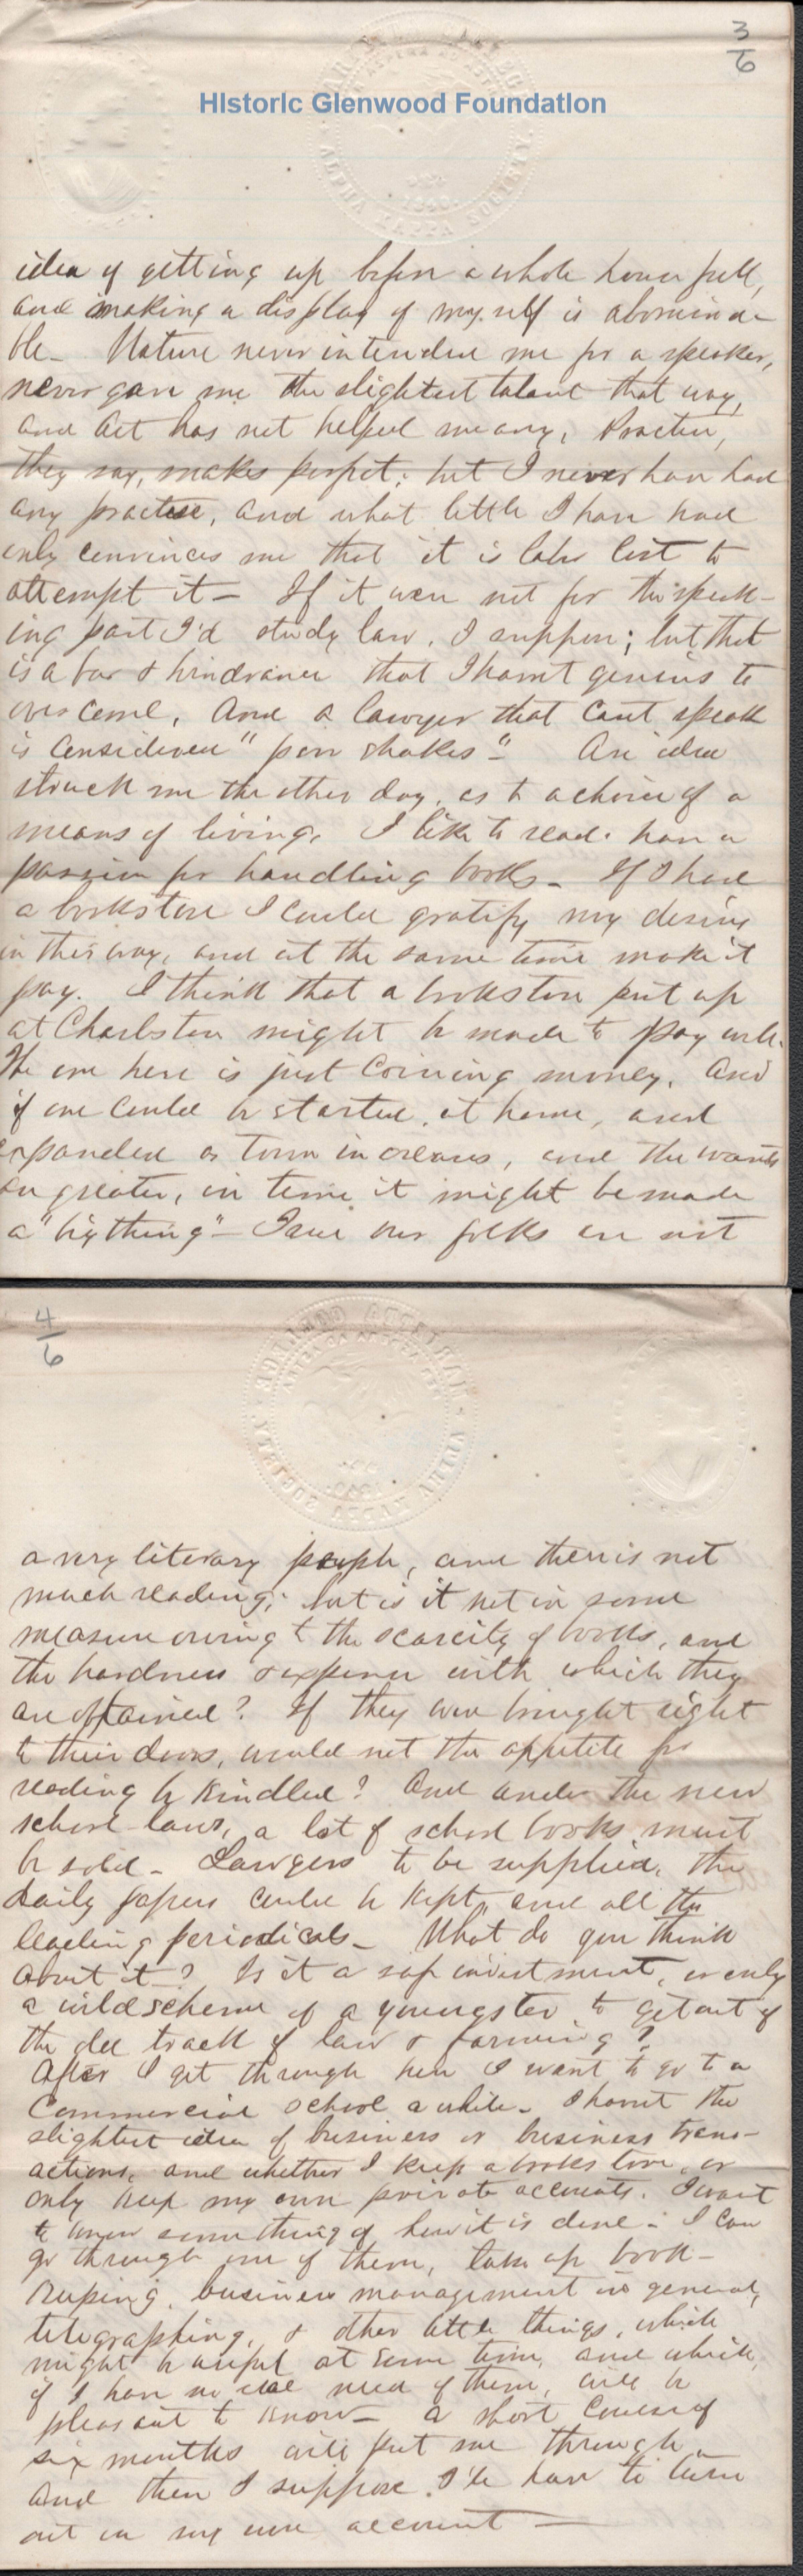 3/6
Historic Glenwood Foundation
ALPHA KAPPA SOCIETY
idea of getting up before a whole house full,
and making a display of myself is abomina-
ble - Nature never intended me for a speaker,
never gave me the slightest talent that way,
and Art has not helped me any. Practice,
they say, makes perfect; but I never have had
any practice, and what little I have had
only convinces me that it is labor lost to
attempt it - If it were not for the speak-
ing part I'd study law, I suppose; but that
is a bar & hindrance that I havnt genius to
overcome. And a lawyer that cant speak
is considered "poor shakes" - An idea
struck me the other day, as to a choice of a
means of living. I like to read. have a
passion for handling books - If I had
a bookstore I could gratify my desires
in this way, and at the same time make it
pay. I think that a bookstore put up
at Charleston might be made to pay well.
The one here is just coining money. And
if one could be started at home, and
expanded as town increases, and the wants
are greater, in time it might be made
a "big thing" - True our folks are not
4/6
a very literary people, and there is not
much reading; but is it not in some
measure owing to the scarcity of books, and
the hardness & expense with which they
are obtained? If they were brought right
to their doors, would not the appetite for
reading be kindled? And under the new
school laws, a lot of school books must
be sold - Lawyers to be supplied, the
daily papers could be kept, and all the
leading periodicals - What do you think
about it -? Is it a safe investment, or only
a wild scheme of a youngster to get out of
the old track of law & farming?
After I get through here I want to go to a
Commercial school a while - I havnt the
slightest idea of business or business trans-
actions, and whether I keep a bookstore, or
only keep my own private accounts. I want
to know something of how it is done - I can
go through one of them, take up book-
keeping, business management in general,
telegraphing, & other little things, which
might be useful at some time, and which,
if I have no real need of them, will be
pleasant to know - A short course of
six months will put me through
And then I suppose I'll have to turn
out on my own account -